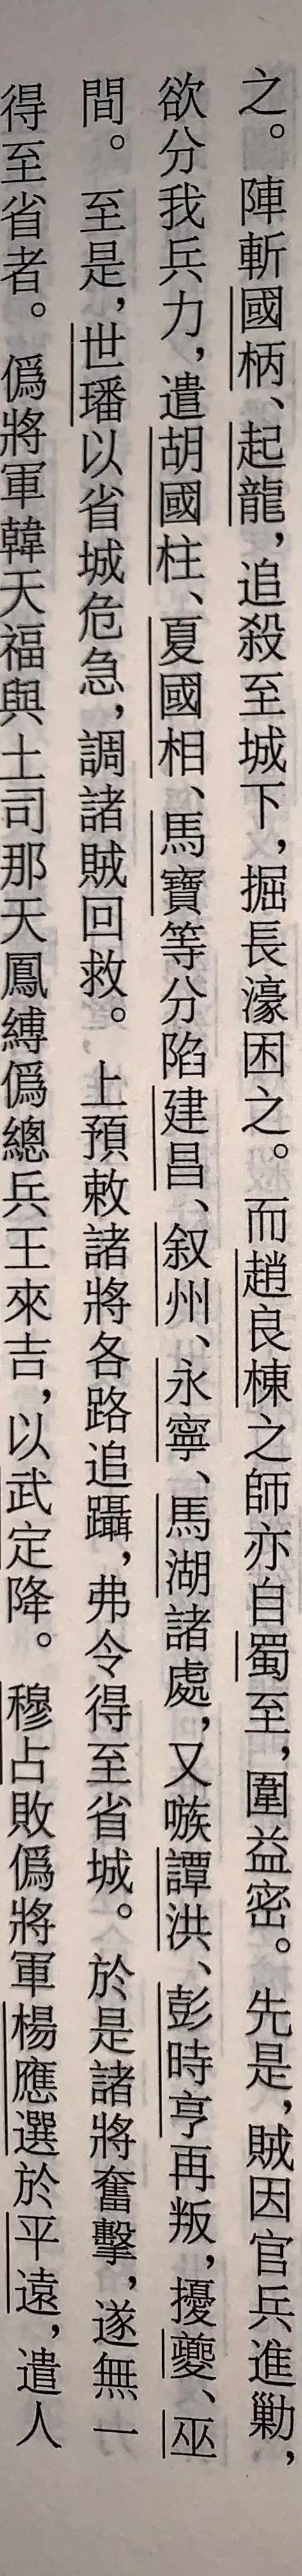 之。陣斬國柄、起龍，追殺至城下，掘長濠困之。而趙良棟之師亦自蜀至，圍益密。先是，賊因官兵進勦，
欲分我兵力，遣胡國柱、夏國相、馬寶等分陷建昌、叙州、永寧、馬湖諸處，又嗾譚洪、彭時亨再叛，擾夔、巫
間。至是，世璠以省城危急，調諸賊回救。上預敕諸將各路追躡，弗令得至省城。於是諸將奮擊，遂無一
得至省者。僞將軍韓天福與土司那天鳳縛僞總兵王來吉，以武定降。穆占敗僞將軍楊應選於平遠，遣人